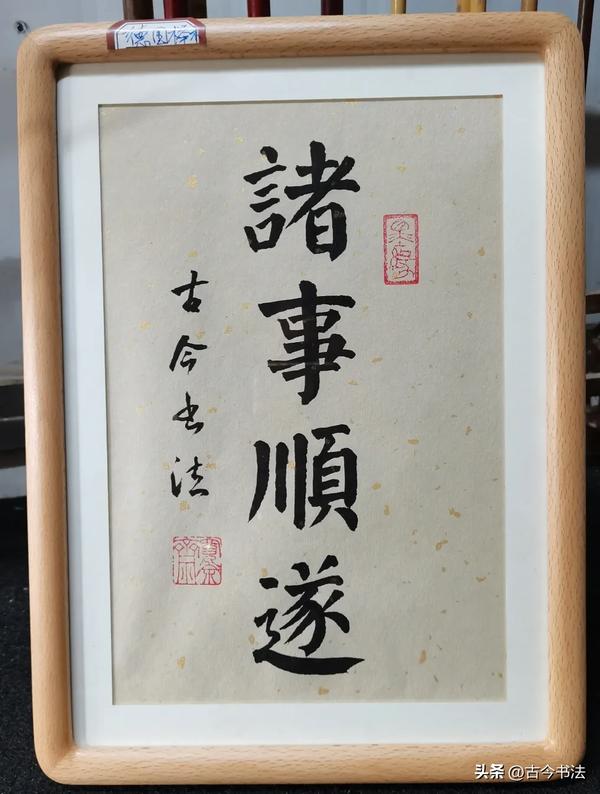 諸事順遂
古今书法
头条 @古今书法